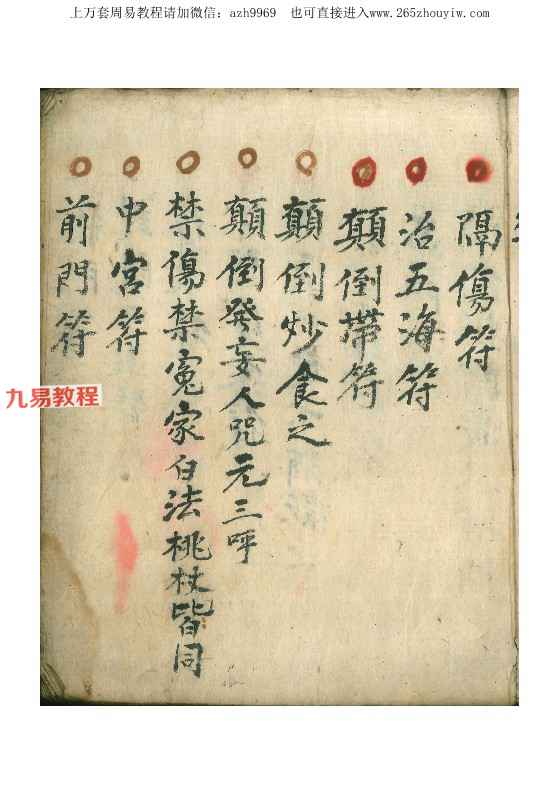 上万套周易教程请加微信：azh9969 也可直接进入www.265zhouyiw.com
隔傷符
治五海符
顛倒帶符
顛倒炒食之
顛倒發妄人咒元三呼
禁傷禁冤家白法桃杖皆同
中宮符
前門符
九易教程